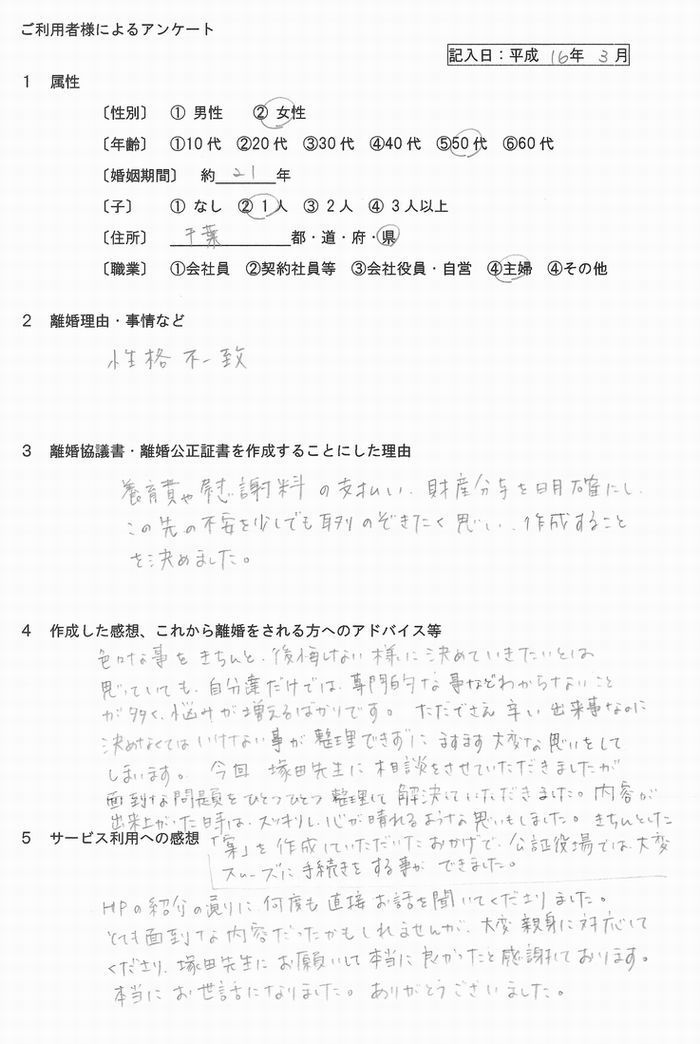 ご利用者様によるアンケート
記入日：平成 16年 3月
1 属性
〔性別〕 ① 男性 ② 女性
〔年齢〕 ①10代 ②20代 ③30代 ④40代 ⑤50代 ⑥60代
〔婚姻期間〕 約 21 年
〔子〕 ① なし ② 1人 ③ 2人 ④ 3人以上
〔住所〕 千葉 都・道・府・県
〔職業〕 ①会社員 ②契約社員等 ③会社役員・自営 ④主婦 ④その他
2 離婚理由・事情など
性格不一致
3 離婚協議書・離婚公正証書を作成することにした理由
養育費や慰謝料の支払い、財産分与を明確にし、
この先の不安を少しでも取りのぞきたく思い、作成すること
を決めました。
4 作成した感想、これから離婚をされる方へのアドバイス等
色々な事をきちんと、後悔しない様に決めていきたいとは
思っていても、自分達だけでは、専門的な事などわからないこと
が多く、悩みが増えるばかりです。ただでさえ辛い出来事なのに
決めなくてはいけない事が整理できずにますます大変な思いをして
しまいます。今回 塚田先生に相談をさせていただきましたが
面倒な問題をひとつひとつ整理して解決していただきました。内容が
出来上がった時は、スッキリし、心が晴れるような思いもしました。きちんとした
「案」を作成していただいたおかげで、公証役場では、大変
スムーズに手続きをする事ができました。
5 サービス利用への感想
HPの紹介の通りに何度も直接お話を聞いてくださりました。
とても面倒な内容だったかもしれませんが、大変親身に対応して
くださり、塚田先生にお願いして本当に良かったと感謝しております。
本当にお世話になりました。ありがとうございました。